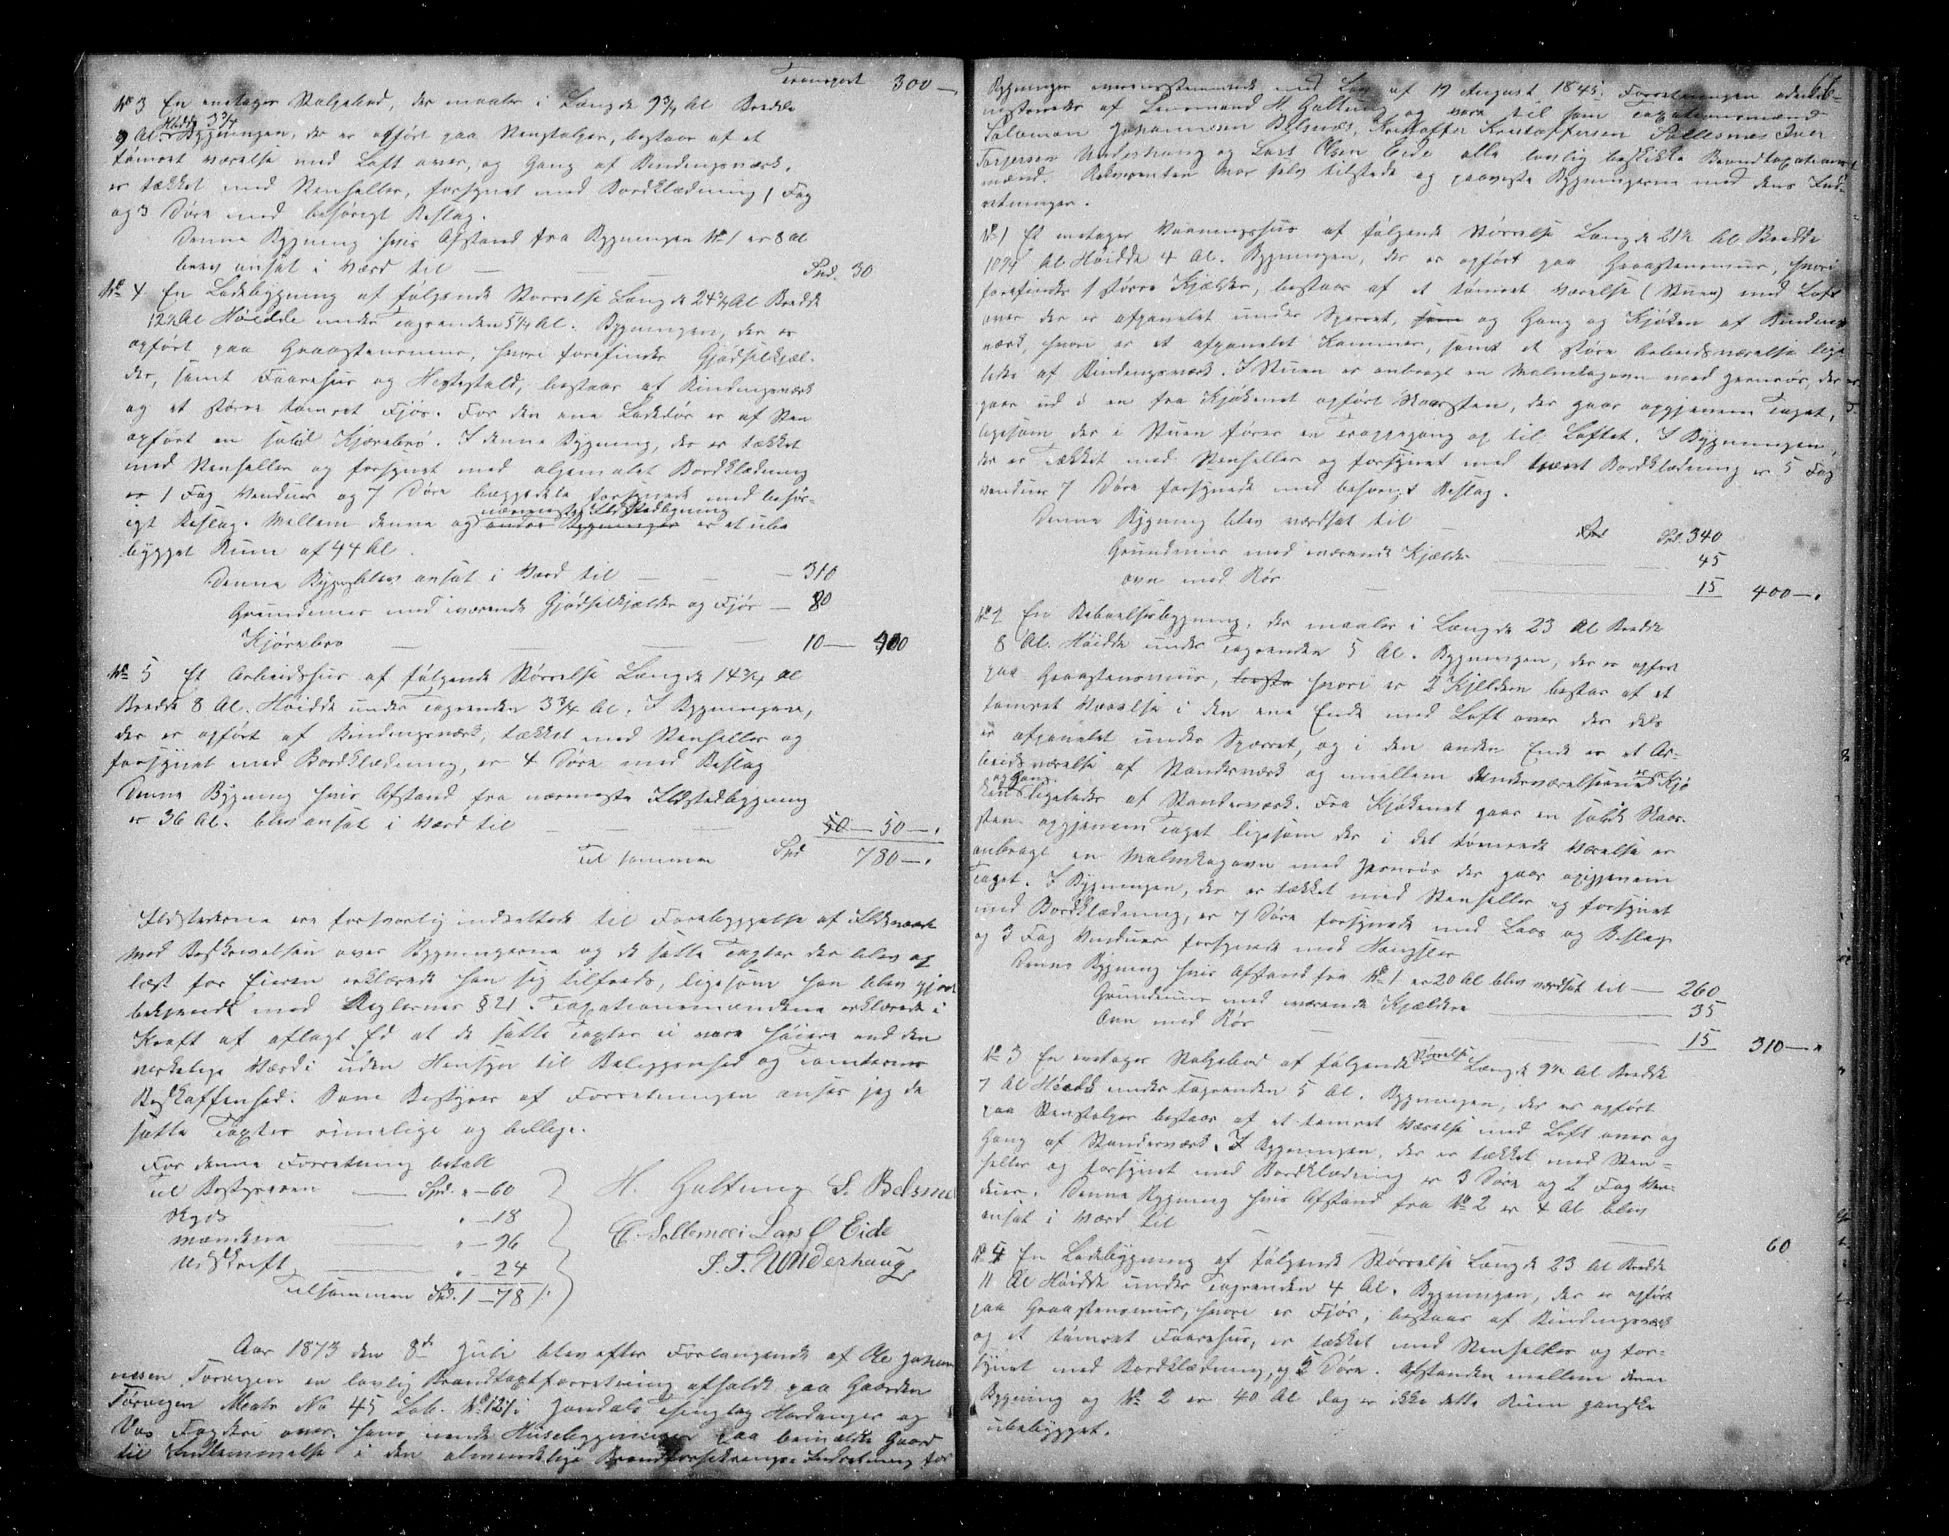 Transport 300 —
No 3 En enetages Stolpebod, der maaler i Længde 9 3/4 Al Bredde
9 Al Høide 3 3/4 Bygningen, der er opført paa Stenstolper, bestaar af et
tømret Værelse med Loft over, og Gang af Bindingsværk,
er tækket med Stenheller, forsynet med Bordklædning 1 Fag
og 3 Døre med behørigt Beslag.
Denne Bygning hvis Afstand fra Bygningen No 1 er 8 Al
blev ansat i Værd til — — Spd. 30
No 4 En Ladebygning af følgende Størrelse Længde 24 3/4 Al Bredde
12 1/2 Al Høidde under Tagrenden 5 1/4 Al. Bygningen, der er
opført paa Graastensmur, hvori forefindes Gjødselkjæl-
der, samt Faarehus og Hestestald, bestaar af Bindingsværk
og et større tømret Fjøs. For den ene Ladedør er af Sten
opført en solid Kjørebro. I denne Bygning, der er tækket
med Stenheller og forsynet med oljemalet Bordklædning
er 1 Fag Venduer og 7 Døre beggedele forsynede med behør-
igt Beslag. Mellem denne og nærmeste Ildstedbygning andre Bygninger er et ube
bygget Rum af 44 Al.
Denne Bygn blev ansat i Værd til — — — 310
Grundmur med iværende Gjødselkjælder og Fjøs — 80
Kjørebro — — — 10 — 400
No 5 Et Arbeidshus af følgende Størrelse Længde 14 3/4 Al
Bredde 8 Al. Høidde under Tagrenden 3 3/4 Al. I Bygningen,
der er opført af Bindingsværk, tækket med Stenheller og
forsynet med Bordklædning, er 4 Døre med Beslag
Denne Bygning hvis Afstand fra nærmeste Ildstedbygning
er 36 Al. blev ansat i Værd til — — 50 — 50 —
Til sammen Spd 780 —
Ildstederne ere forsvarlig indrettede til Forebyggelse af Ildsvaade
Med Beskrivelsen over Bygningerne og de satte Taxter der blev op
læst for Eieren erklærede han sig tilfreds, ligesom han blev gjort
bekjendt med Reglernes § 21. Taxationsmændene erklærede i
Kraft af aflagt Ed at de satte Taxter ei vare høiere end den
virkelige Værdi uden Hensyn til Beliggenhed og Tomternes
Beskaffenhed. Som Bestyrer af Forretningen anser jeg de
satte Taxter rimelige og billige.
For denne Forretning betalt
Til Bestyreren — Spd. " — 60
Skyds — " — 18
Mændene — " — 96
Udskrift — " — 24
Tilsammen Spd. 1 — 78
H. Galtung S. Belsnes
C. Sollesnæs Lars O Eide
I. T. Underhaug
Aar 1873 den 8de Juli blev efter Forlangende af Ole Johan
nesen Torvigen en lovlig Brandtaxtforretning afholdt paa Gaarden
Torvigen Matr No 45 Løb. No 121 i Jondals Thinglag Hardanger og
Vos Fogderi over hans eiende Husebygninger paa bemældte Gaard
til Indlemmelse i den almindelige Brandforsikrings Indretning for
Bygninger overensstemmende med Lov af 19 August 1845. Forretningen admini-
nistreredes af Lensmand H. Galtung og vare til som Taxationsmænd
Salemon Johannesen Belsnes, Kristoffer Kristoffersen Sollesnes Iver
Torjersen Underhaug og Lars Olsen Eide alle lovlig beskikkede Brandtaxations
mænd. Rekvirenten var selv tilstede og paaviste Bygningerne med dens Ind-
retninger.
No 1 Et enetages Vaaningshus af følgende Størrelse Længde 21 1/2 Al Bredde
10 3/4 Al Høidde 4 Al. Bygningen, der er opført paa Graastensmur, hvori
forefindes 1 større Kjælder, bestaar af et tømret Værelse (Stuen) med Loft
over der er afpanelet under Sperret, som og Gang og Kjøken af Bindings
værk, hvori er et afpanelet Kammer, samt et større Arbeidsværelse lige
ledes af Bindingsværk. I Stuen er anbragt en Malmkagovn med Jernrør, der
gaar ud i en fra Kjøkenet opført Skorsten, der gaar opgjennem Taget,
ligesom der i Stuen fører en Trappegang op til Loftet. I Bygningen,
der er tækket med Stenheller og forsynet med Bordklædning er 5 Fag
venduer 7 Døre forsynede med behørigt Beslag.
Denne Bygning blev værdsat til — Spd. 340
Grundmur med iværende Kjælder — 45
Ovn med Rør — 15 400 —
No 2 En Beboelsesbygning, der maaler i Længde 23 Al Bredde
8 Al. Høidde under Tagrenden 5 Al. Bygningen, der er opført
paa Graastensmur, hvori er 2 Kjeldere bestaar af et
tømret Værelse i den ene Ende med Loft over der dels
er afpanelet under Sperret, og i den anden Ende er et Ar-
beidsværelse af Standerværk og mellem Underværelserne er Kjø
ken og Gang ligeledes af Standerværk. Fra Kjøkenet gaar en solid Skor-
sten opgjennem Taget ligesom der i det tømrede Værelse er
anbragt en Malmkagovn med Jernrør der gaar opigjennem
Taget. I Bygningen, der er tækket med Stenheller og forsynet
med Bordklædning, er 7 Døre forsynede med Laas og Beslag
og 3 Fag Venduer forsynede med Hengsler
Denne Bygning hvis Afstand fra No 1 er 20 Al blev værdsat til — 260
Grundmur med iværende Kjældere — 35
Ovn med Rør — 15 310 —
No 3 En enetages Stolpebod af følgende Størrelse Længde 9 1/2 Al Bredde
7 Al Høidde under Tagrenden 5 Al. Bygningen, der er opført
paa Stenstolper bestaar af et tømret Værelse med Loft over og
Gang af Standerværk. I Bygningen, der er tækket med Sten-
heller og forsynet med Bordklædning er 3 Døre og 2 Fag Ven-
duer. Denne Bygning hvis Afstand fra No 2 er 4 Al blev
ansat i Værd til — 60
No 4 En Ladebygning af følgende Størrelse Længde 23 Al Bredde
11 Al Høidde under Tagrenden 4 Al. Bygningen, der er opført
paa Graastensmur, hvori er Fjøs, bestaar af Bindingsværk
og et tømret Faarehus, er tækket med Stenheller og for-
synet med Bordklædning, og 2 Døre. Afstanden mellem denne
Bygning og No 2 er 40 Al dog er ikke dette Rum ganske
ubebygget.